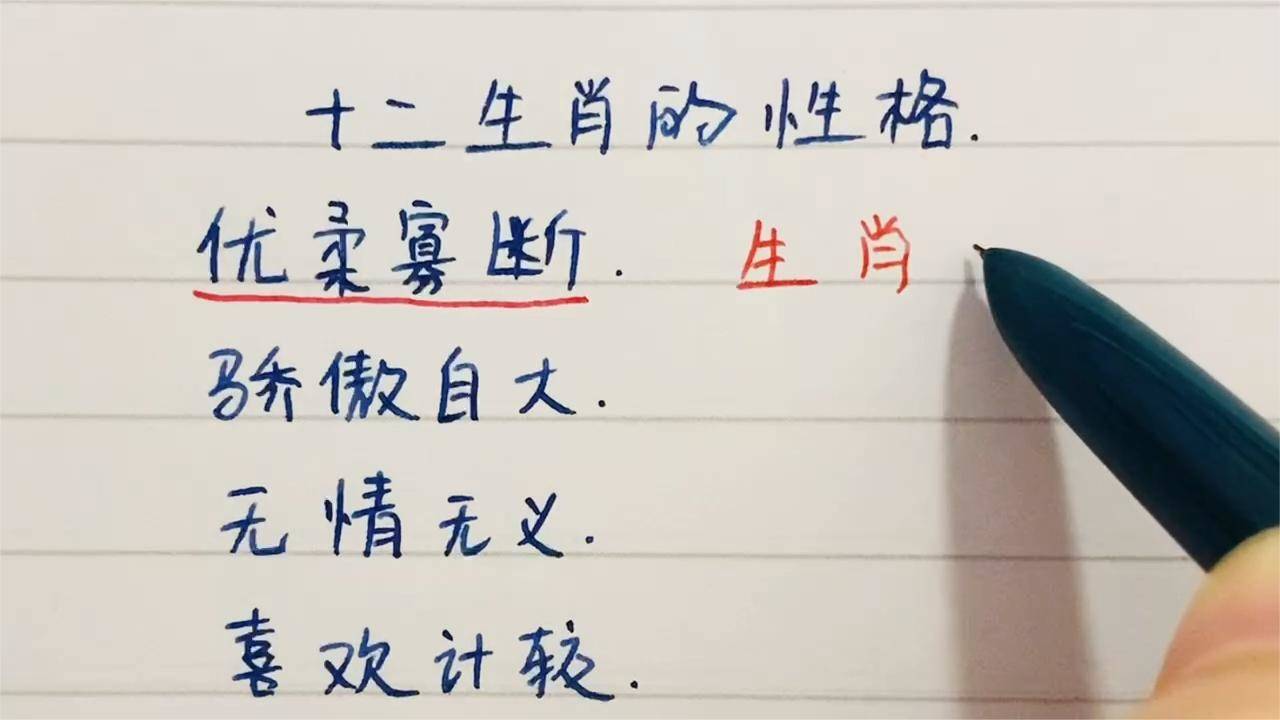 十二生肖的性格.
优柔寡断. 生肖
骄傲自大.
无情无义.
喜欢计较.